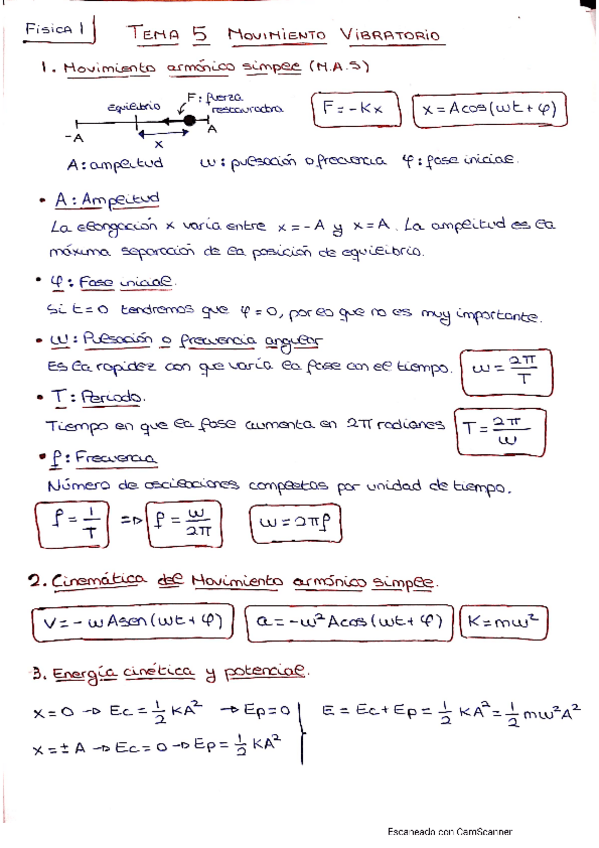 Física 1 TEMA 5 MOVIMIENTO VIBRATORIO
1. Movimiento armónico simple (M.A.S)
equilibrio F: fuerza restauradora
-A x A
F = -Kx x = A cos(ωt + φ)
A: amplitud ω: pulsación o frecuencia φ: fase inicial.
• A: Amplitud
La elongación x varía entre x = -A y x = A. La amplitud es la
máxima separación de la posición de equilibrio.
• φ: Fase inicial.
Si t = 0 tendremos que φ = 0, por lo que no es muy importante.
• ω: Pulsación o frecuencia angular
Es la rapidez con que varía la fase con el tiempo. ω = 2π/T
• T: Periodo.
Tiempo en que la fase aumenta en 2π radianes T = 2π/ω
• f: Frecuencia
Número de oscilaciones completas por unidad de tiempo.
f = 1/T => f = ω/2π ω = 2πf
2. Cinemática del Movimiento armónico simple.
V = -ωA sen(ωt + φ) a = -ω²A cos(ωt + φ) K = mω²
3. Energía cinética y potencial.
x = 0 → Ec = 1/2 KA² → Ep = 0 E = Ec + Ep = 1/2 KA² = 1/2 mω²A²
x = ± A → Ec = 0 → Ep = 1/2 KA²
Escaneado con CamScanner